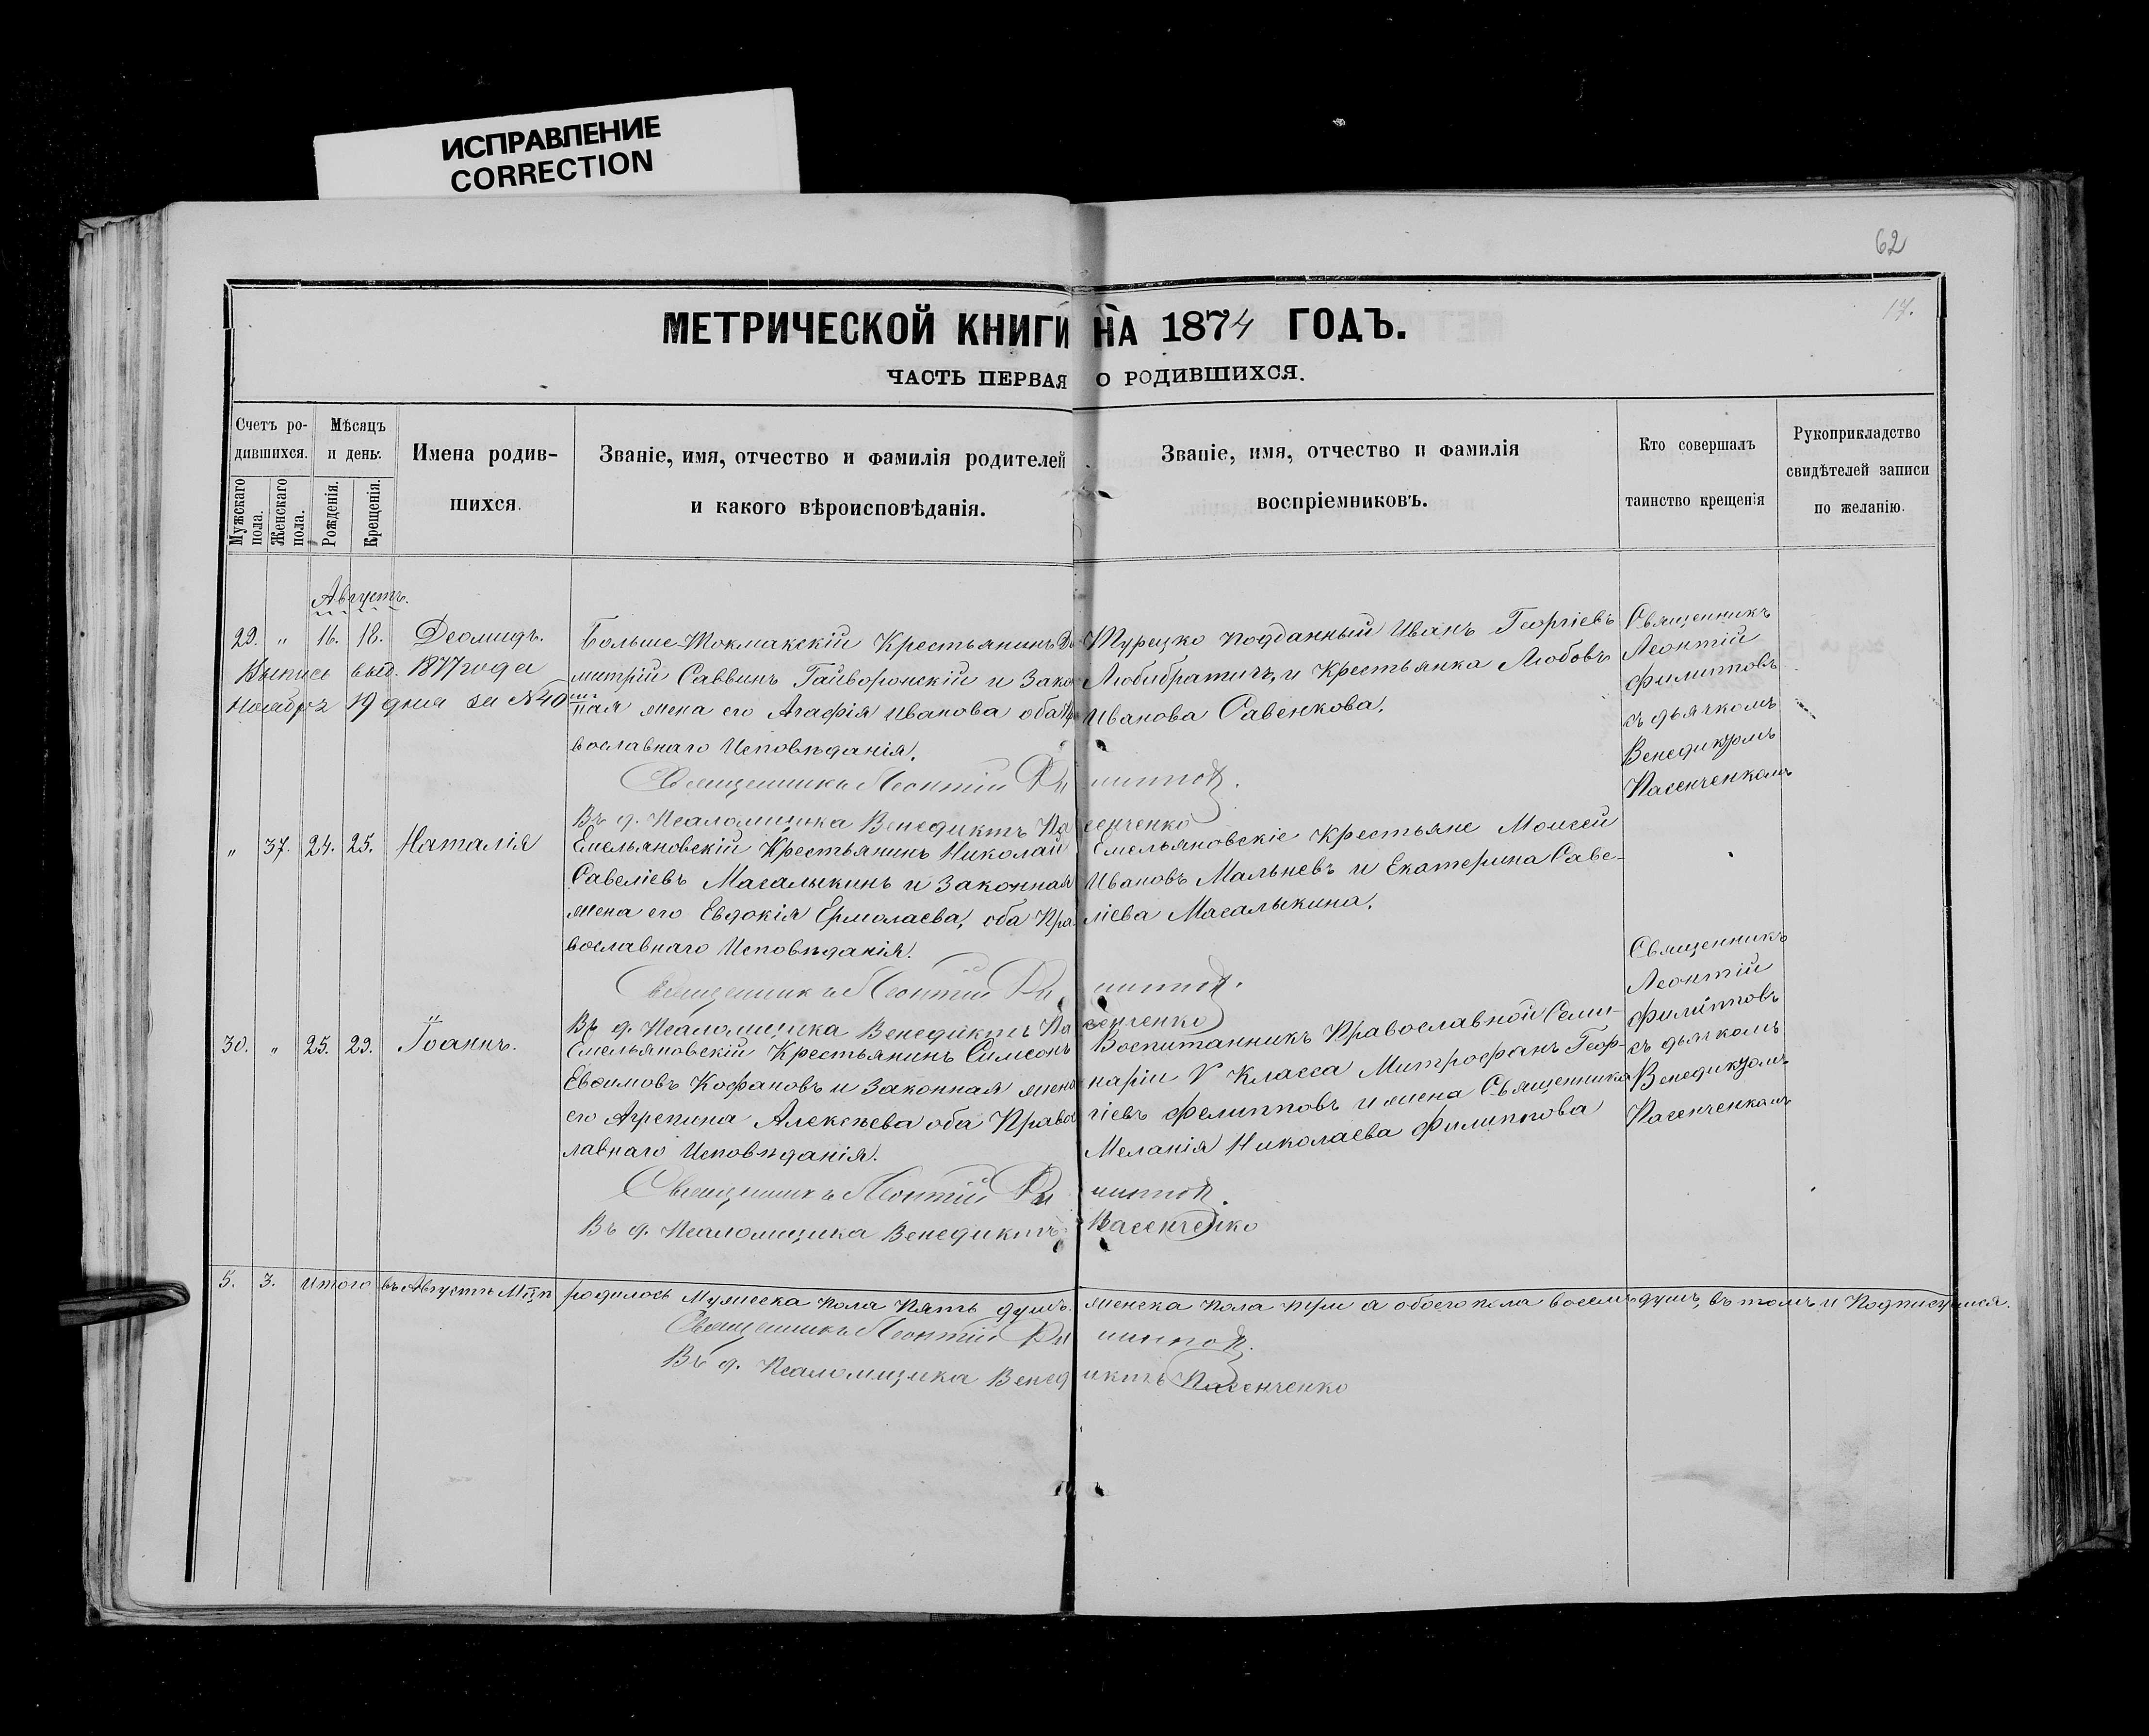 ИСПРАВЛЕНИЕ
CORRECTION
62
17.
МЕТРИЧЕСКОЙ КНИГИ НА 1874 ГОДЪ.
ЧАСТЬ ПЕРВАЯ О РОДИВШИХСЯ.
Счетъ ро-
дившихся.
Мужскаго пола.
Женскаго пола.
Мѣсяцъ
и день.
Рожденія.
Крещенія.
Имена родив-
шихся.
Званіе, имя, отчество и фамилія родителей
и какого вѣроисповѣданія.
Званіе, имя, отчество и фамилія
воспріемниковъ.
Кто совершалъ
таинство крещенія
Рукоприкладство
свидѣтелей записи
по желанію.
Августъ.
29. " 16. 18. Деомидъ.
Выпись выд. 1877 года
Ноября 19 дня за № 40
Больше-Токмакскій Крестьянинъ Ди-
митрій Саввинъ Гайворонскій и Закон-
ная жена его Агафія Иванова оба Пра-
вославнаго Исповѣданія.
Турецко подданный Иванъ Георгіевъ
Любибратичъ, и Крестьянка Любовъ
Иванова Савенкова.
Священникъ
Леонтій
Филиповъ
съ дьячкомъ
Венедиктомъ
Пасенченкомъ
Священникъ Леонтій Филиппов.
Въ д. Псаломщика Венедиктъ Пасенченко
" 37. 24. 25. Наталія
Емельяновскій Крестьянинъ Николай
Савеліевъ Масалыкинъ и Законная
жена его Евдокія Ермолаева, оба Пра-
вославнаго Исповѣданія.
Емельяновскіе Крестьяне Моисей
Ивановъ Мальневъ и Екатерина Саве-
ліева Масалыкина.
Священникъ Леонтій Филиппов.
Въ д. Псаломщика Венедиктъ Пасенченко
30. " 25. 29. Іоаннъ.
Емельяновскій Крестьянинъ Симеонъ
Евѳимовъ Кофановъ и Законная жена
его Агрепина Алексѣева оба Право-
лавнаго Исповѣданія.
Воспитанникъ Православной Семи-
наріи V Класса Митрофанъ Геор-
гіевъ Фелипповъ и жена Священника
Меланія Николаева Филиппова
Священникъ
Леонтій
Филипповъ
съ дьячкомъ
Венедиктомъ
Пасенченкомъ
Священникъ Леонтій Филиппов.
Въ д. Псаломщика Венедиктъ Пасенченко
5. 3. Итого въ Августѣ родилось Мужеска пола Пять душъ, женска пола три а обоего пола восемь душъ, въ томъ и Подписуемся.
Священникъ Леонтій Филиппов.
Въ д. Псаломщика Венедиктъ Пасенченко